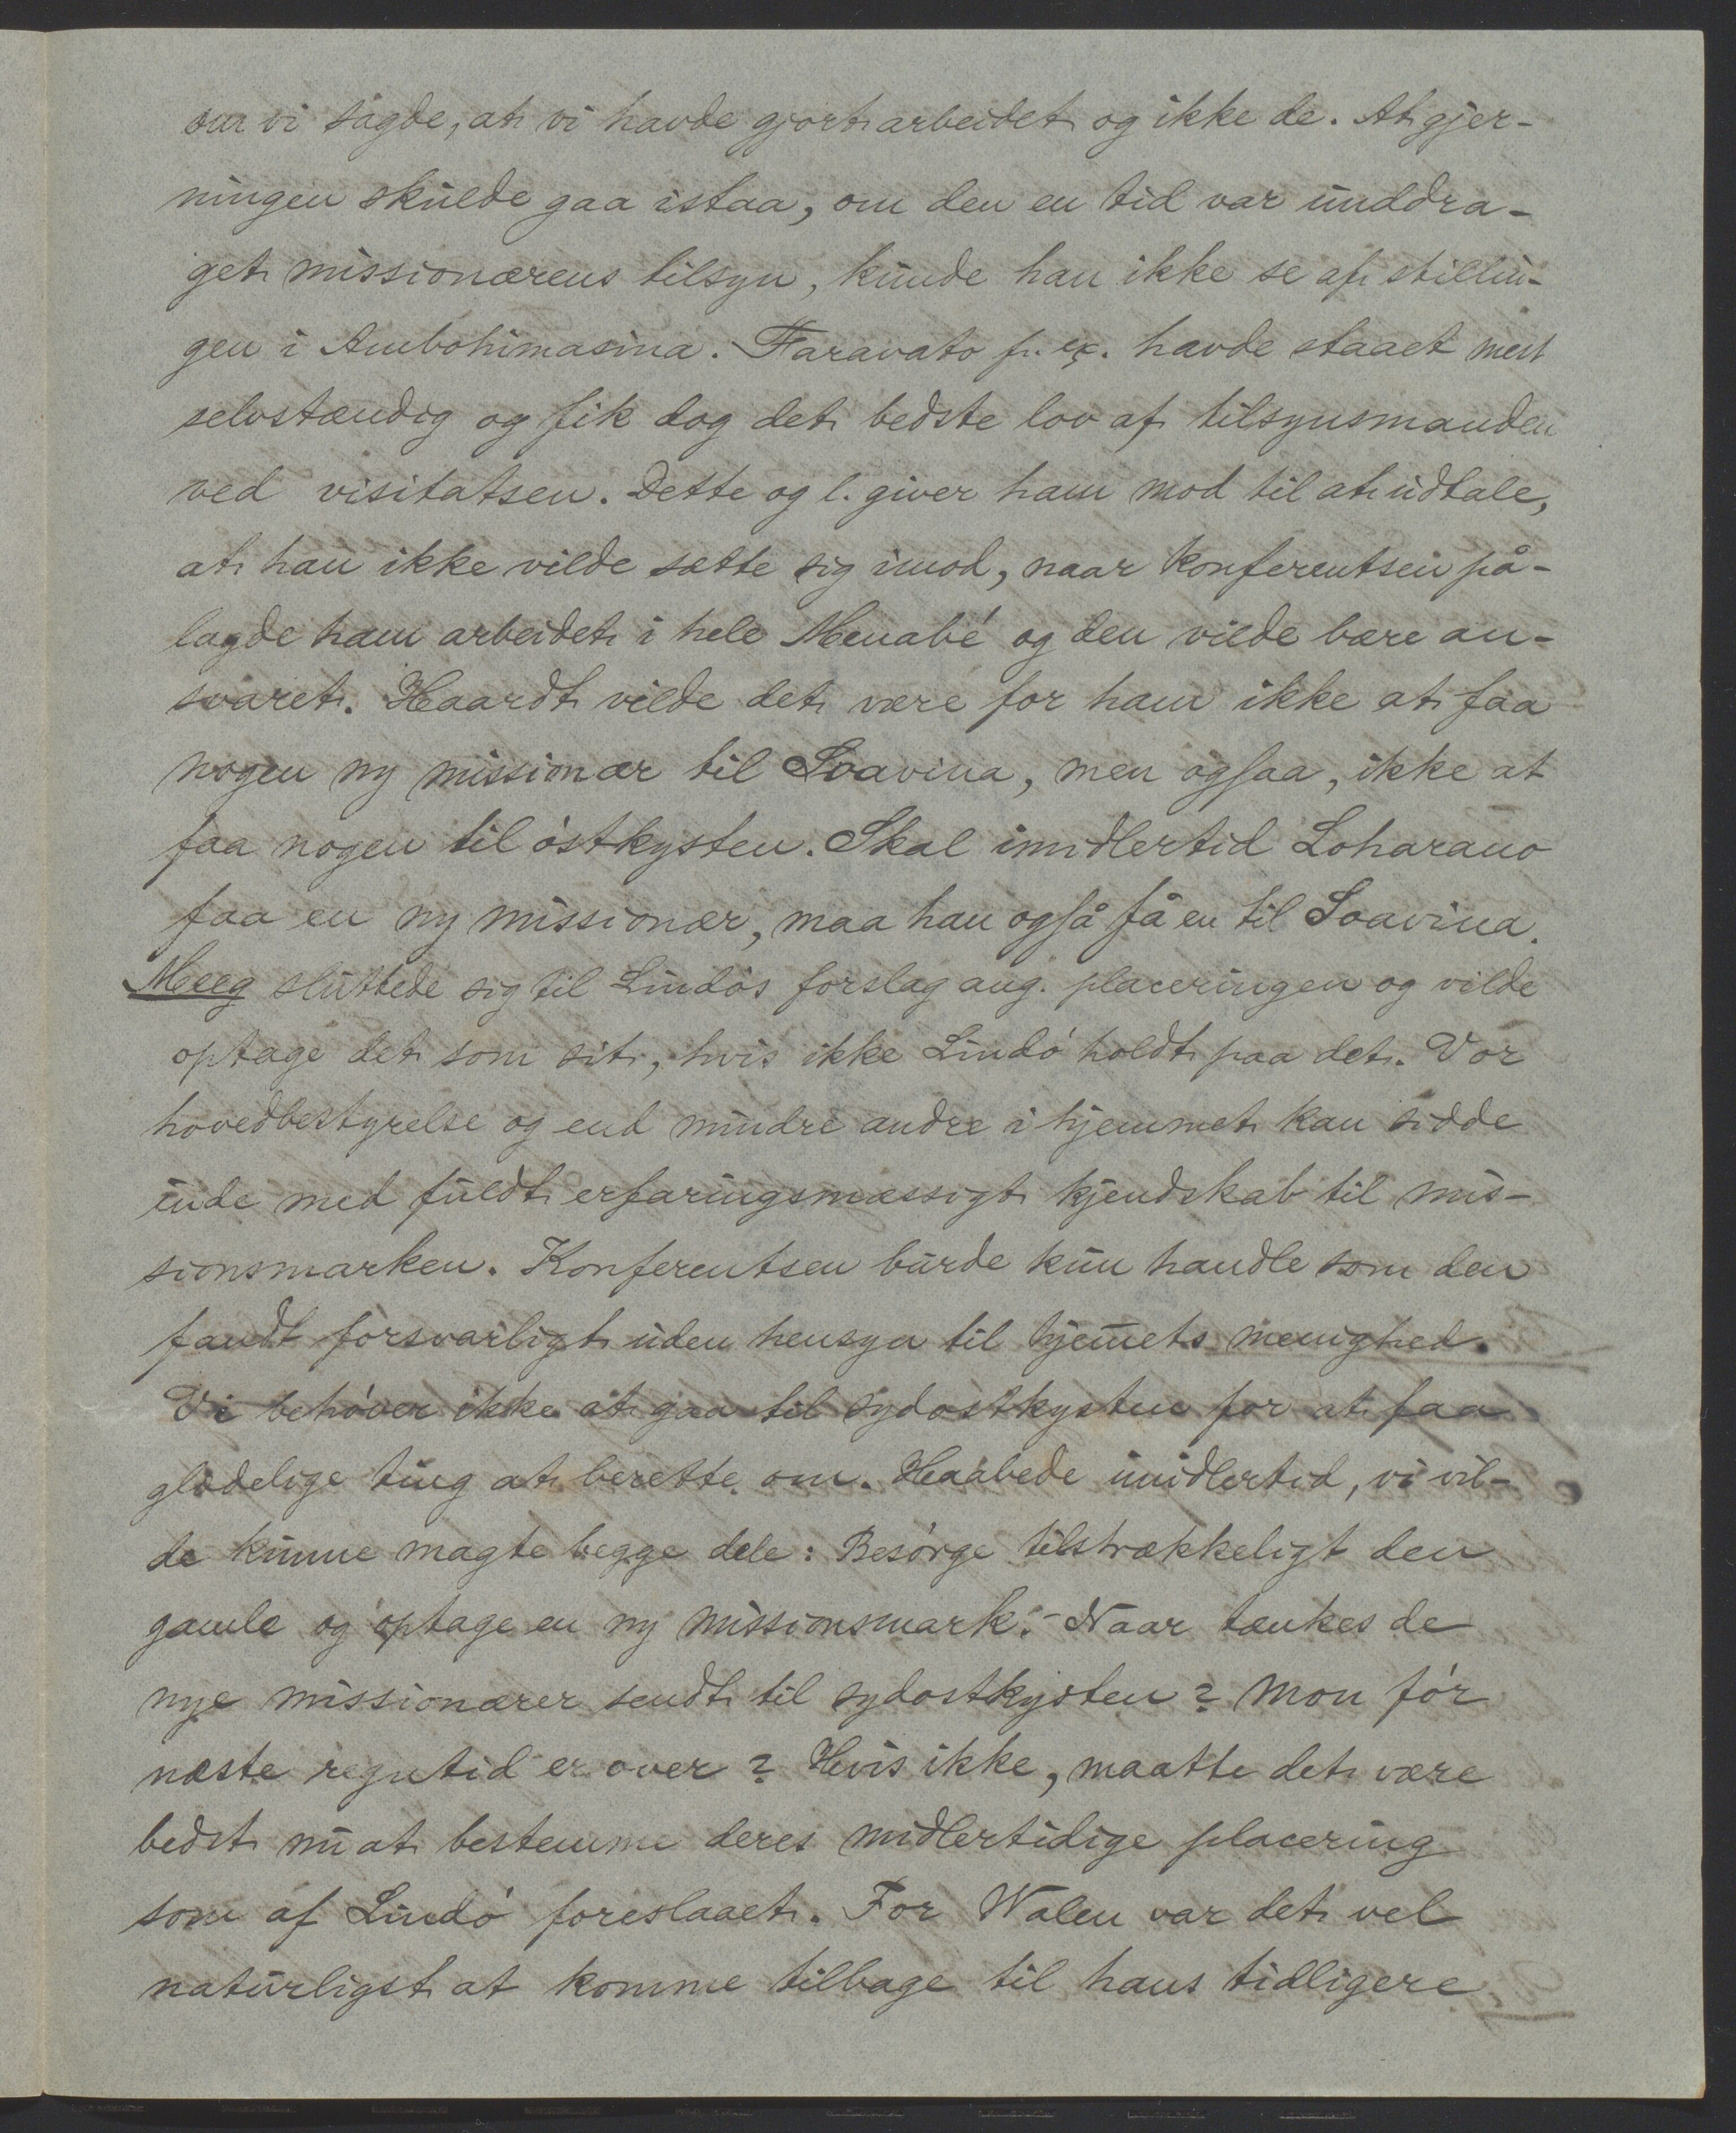 om vi sagde, at vi havde gjort arbeidet og ikke de. At gjer-
ningen skulde gaa istaa, om den en tid var unddra-
get missionærens tilsyn, kunde han ikke se af stillin-
gen i Ambohimasina. Faravato f. ex. havde staaet mest
selvstændig og fik dog det bedste lov af tilsynsmanden
ved visitatsen. Dette og l. giver ham mod til at udtale,
at han ikke vilde sætte sig imod, naar konferentsen på-
lagde ham arbeidet i hele Menabé og den vilde bære an-
svaret. Haardt vilde det være for ham ikke at faa
nogen ny missionær til Soavina, men ogsaa, ikke at
faa nogen til óstkysten. Skal imidlertid Loharano
faa en ny missionær, maa han også få en til Soavina.
Meeg sluttede sig til Lindós forslag ang. placeringen og vilde
optage det som sit, hvis ikke Lindó holdt paa det. Vor
hovedbestyrelse og end mindre andre i hjemmet kan sidde
inde med fuldt erfaringsmæssigt kjendskab til mis-
sionsmarken. Konferentsen burde kun handle som den
fandt forsvarligt uden hensyn til hjem̄ets menighed.
Vi behóver ikke at gaa til sydostkysten for at faa
glædelige ting at berette om. Haabede imidlertid, vi vil-
de kunne magte begge dele: Besórge tilstrækkeligt den
gamle og optage en ny missionsmark. - Naar tænkes de
nye missionærer sendt til sydostkysten? Mon fór
næste regntid er over? Hvis ikke, maatte det være
bedst nu at bestemme deres midlertidige placering
som af Lindó foreslaaet. For Walen var det vel
naturligst at komme tilbage til hans tidligere